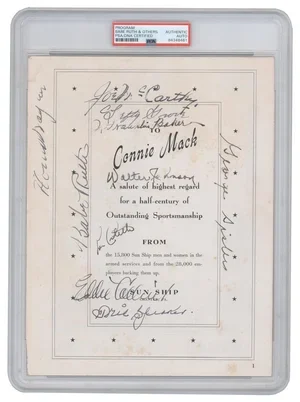 PROGRAM
BABE RUTH & OTHERS
PSA/DNA CERTIFIED
AUTHENTIC
AUTO
PSA
Honus Wagner
Babe Ruth
George Sisler
Lefty Grove
TO
Connie Mack
Walter Johnson
A salute of highest regard
for a half-century of
Outstanding Sportsmanship
FROM
the 15,000 Sun Ship men and women in the
armed services and from the 20,000 em-
ployees backing them up.
SUN SHIP
Eddie Collins
Tris Speaker
1